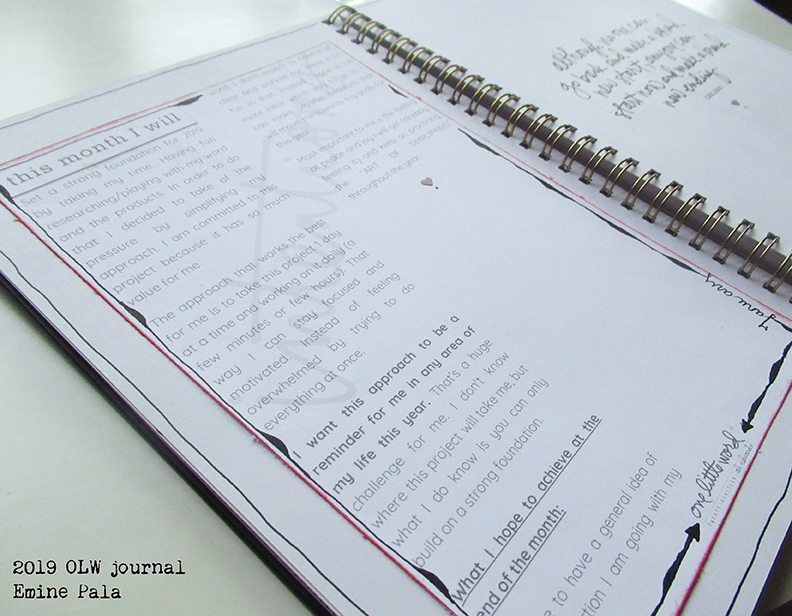 this month I will
Set a strong foundation for 2019
by taking my time. Having fun
researching/playing with my word
and the products in order to do
that I decided to take of the
pressure by simplifying the
approach. I am committed to this
project because it has so much
value for me.
The approach that works the best
for me is to take this project 1 day
at a time and working on it daily (a
few minutes or few hours). That
way I can stay focused and
motivated, instead of feeling
overwhelmed by trying to do
everything at once.
I want this approach to be a
reminder for me in any area of
my life this year. That's a huge
challenge for me. I don't know
where this project will take me, but
what I do know is you can only
build on a strong foundation.
What I hope to achieve at the
end of the month:
to have a general idea of
I am going with my
Most important to me is the feeling
of peace and joy I will get (already
feeling it) and keep on practicing
the "ART OF SIMPLIFYING"
throughout the year.
January
one little word
although no one can
go back and make a brand
new start, anyone can
start now and make a brand
new ending
2019 OLW journal
Emine Pala